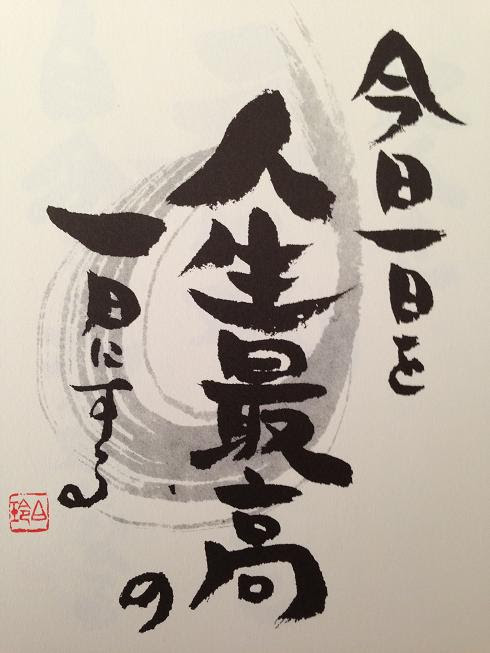 今日一日を
人生最高の
一日にする